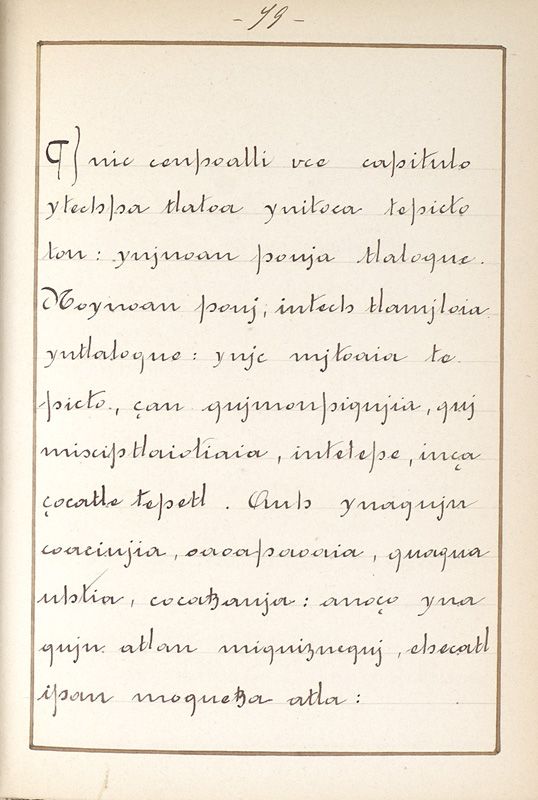 - 79 -
¶ Jnic cenpoalli vce capitulo
ytechpa tlatoa ynitoca tepicto
ton: ynjnoan pouja tlaloque.
Noynoan pouj, intech tlamjloia
yntlaloque: ynjc mjtoaia te
picto, çan qujmonpiqujia, quj
misciptlaiotiaia, intetepe, inça
çocatle tepetl. Auh ynaqujn
coaciujia, oaoapaoaia, quaqua
uhtia, cocaꜩanja: anoço yna
qujn atlan miquiznequj, ehecatl
ipan moqueꜩa atla: